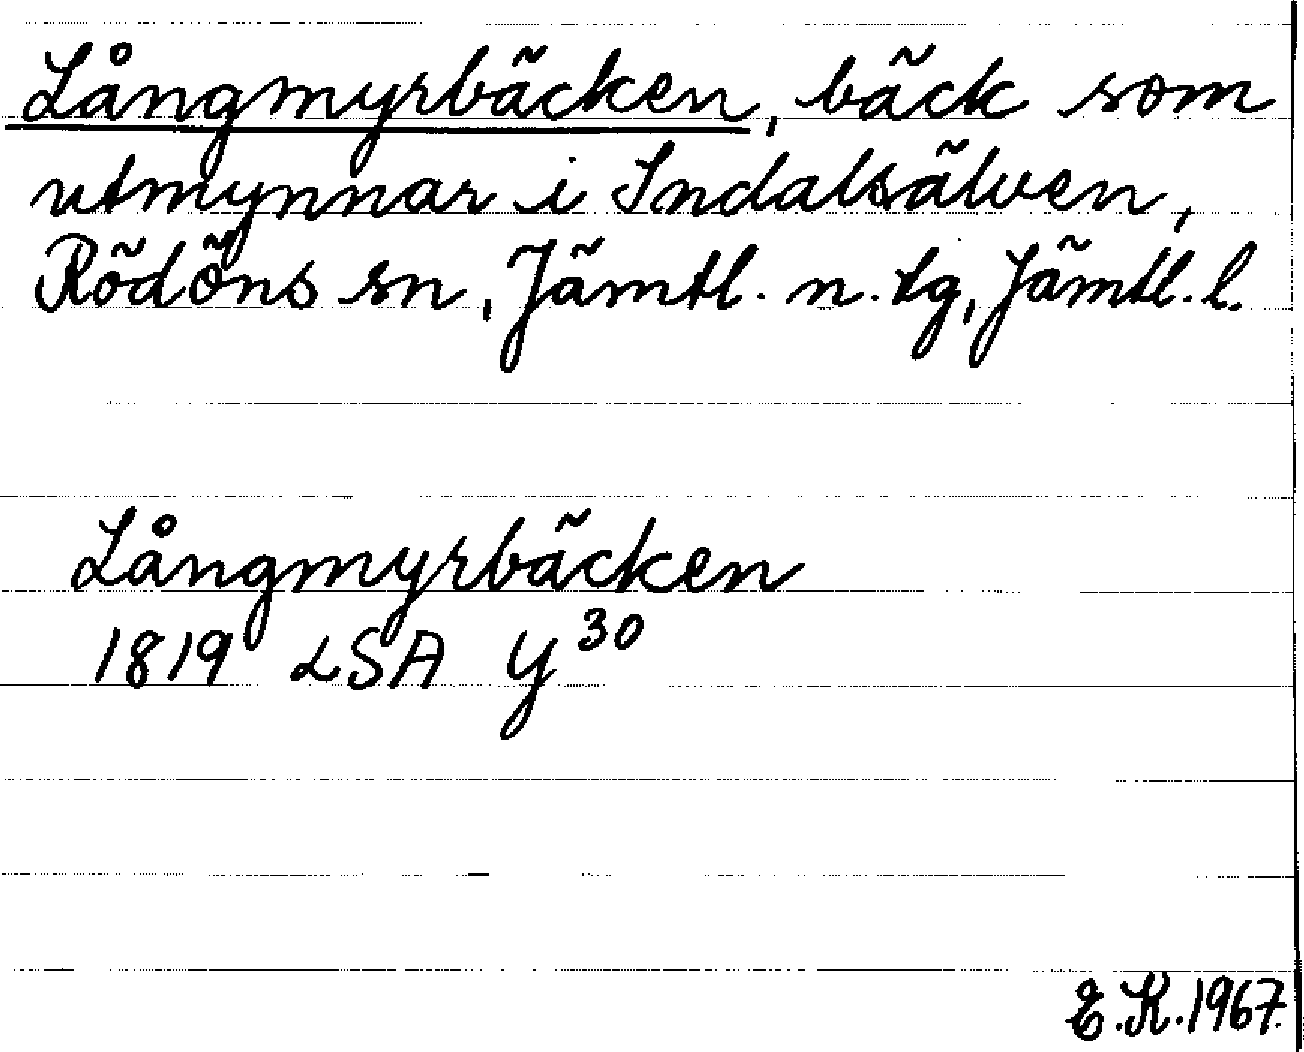 Långmyrbäcken, bäck som
utmynnar i Indalsälven,
Rödöns sn, Jämtl. n. tg, Jämtl. l.
Långmyrbäcken
1819 LSA Y 30
E.K. 1967.